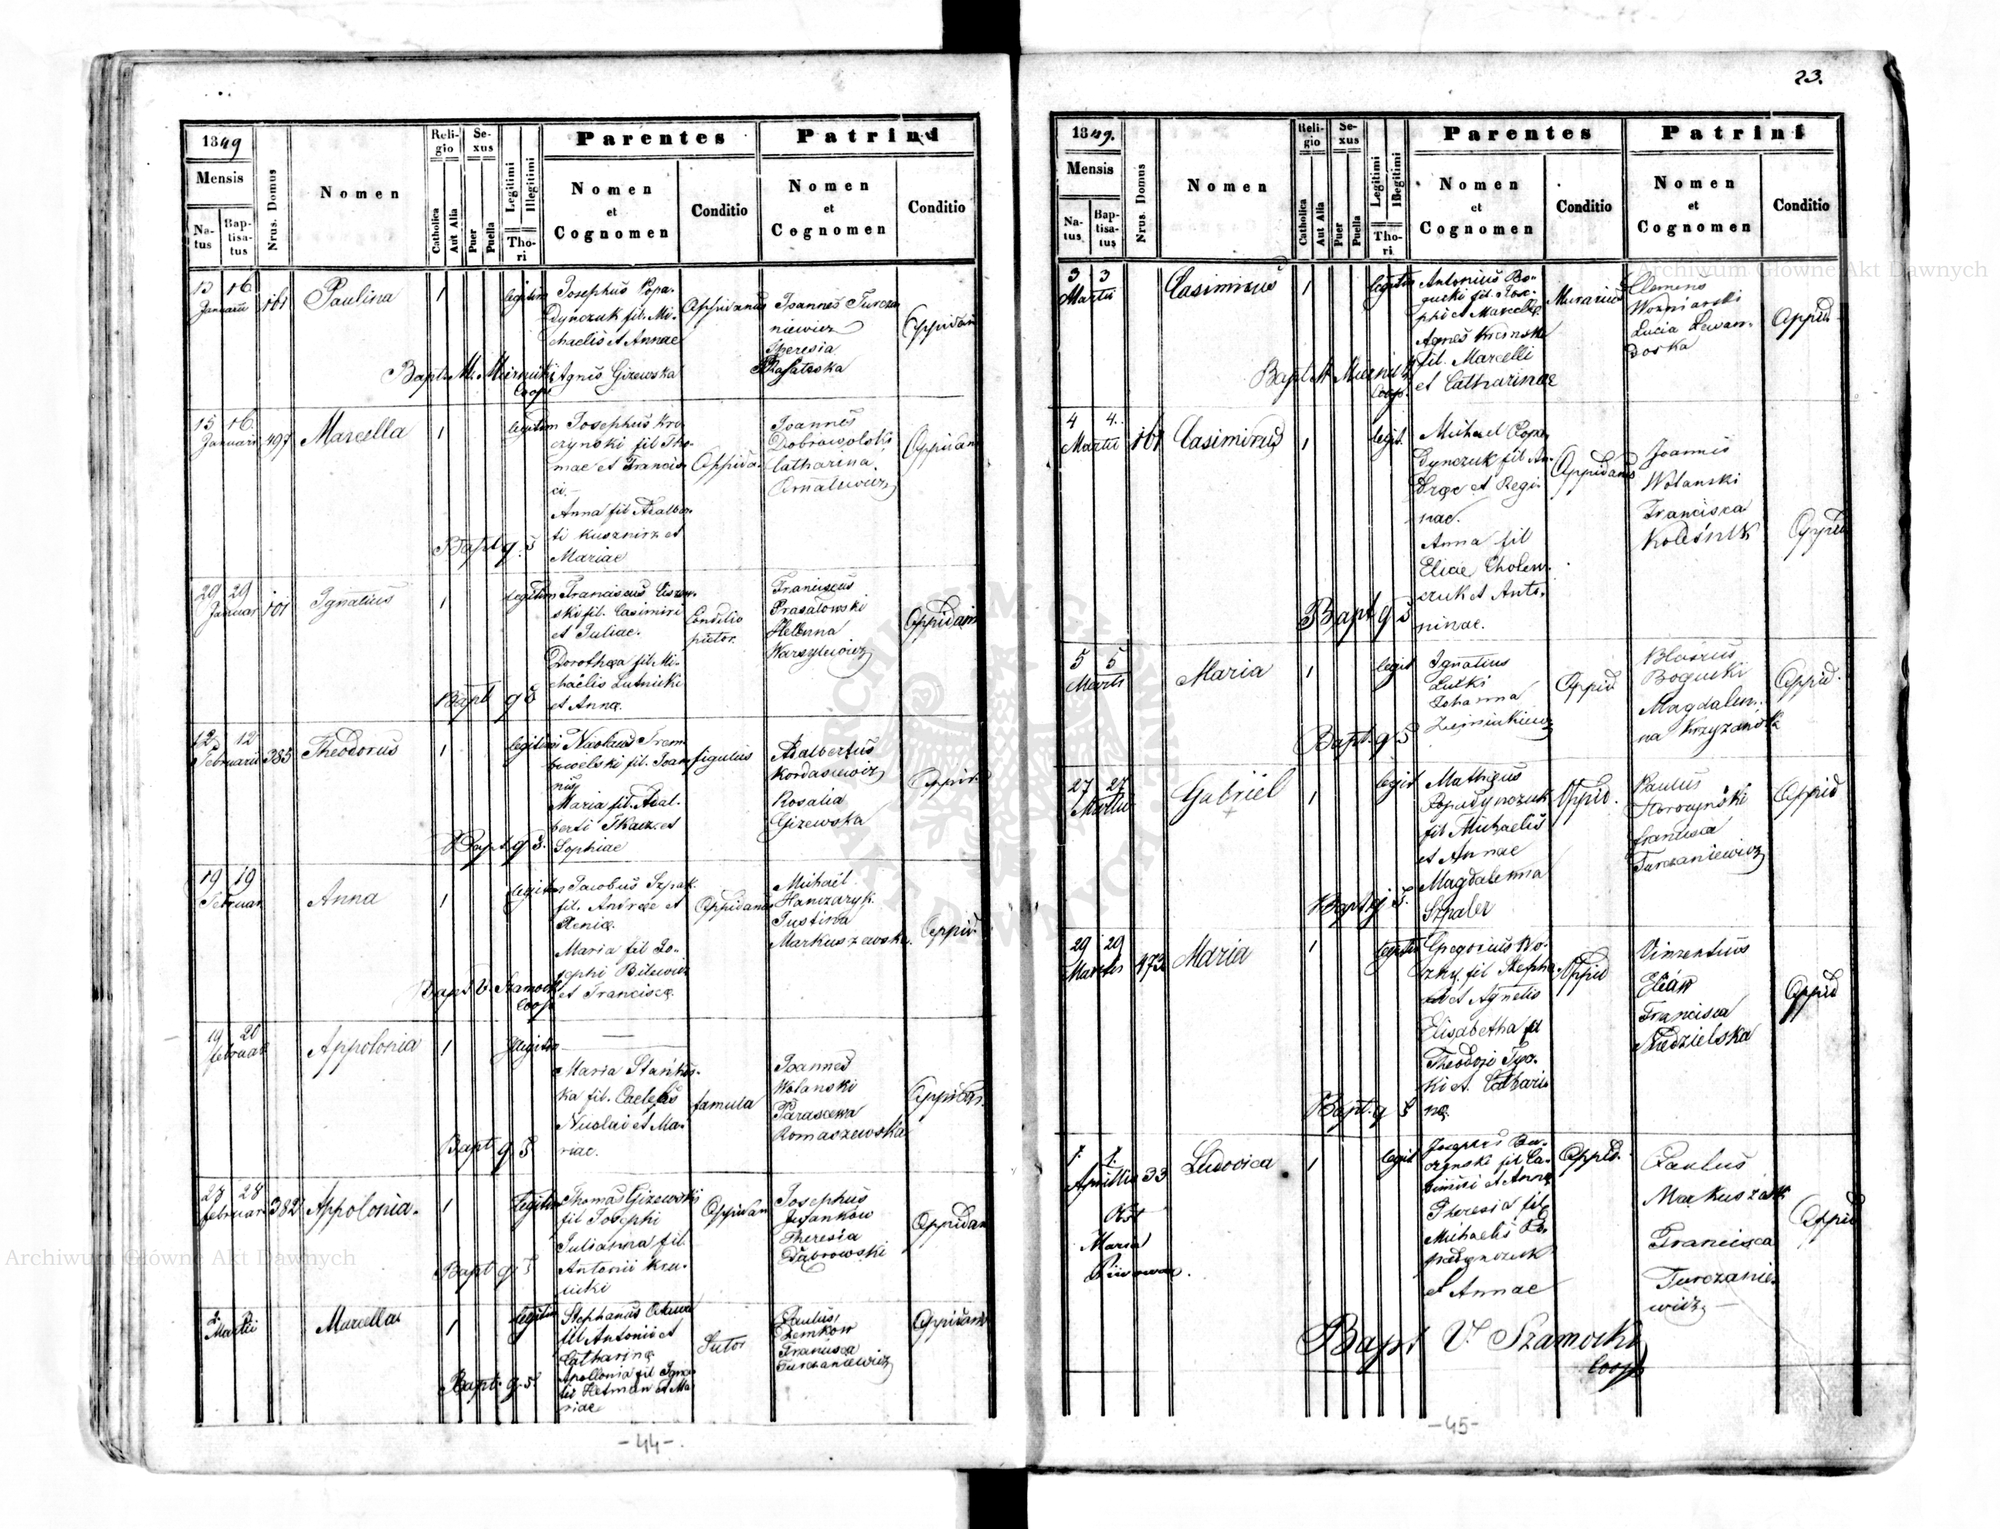 1849
Mensis
Natus
Baptisatus
Nrus. Domus
Nomen
Religio
Catholica
Aut Alia
Sexus
Puer
Puella
Legitimi
Illegitimi
Thori
Parentes
Nomen
et
Cognomen
Conditio
Patrini
Nomen
et
Cognomen
Conditio
13 16
Januarii
161
Paulina
1
legitim
Josephus Popa-
dynczuk fil. Mi-
chaelis et Annae
Agnes Gizewska
Oppidanus
Joannes Turcza
niewicz
Theresia
Oppidani
Bapt. M. Miernicki
Coop.
15 16
Januar
497
Marcella
1
legitim
Josephus Kro
czynski fil Tho-
mae et Francis-
ci.-
Anna fil Adalber-
ti Kusznirz et
Mariae
Oppida
Joannes
Dobrowolski
Catharina
Oppidani
Bapt q. s
29 29
Januar
101
Ignatius
1
legitim
Franciscus
ski fil. Casimiri
et Juliae.
Dorothea fil. Mi-
chaelis Lutnicki
et Anna
Conditio
pictor.
Franciscus
Prasalowski
Helenna
Warsylewicz
Oppidani
Bapt q s
12 12
Februarii
385
Theodorus
1
legitimi
Nicolaus Trem
bowelski fil. Joan
nis
Maria fil. Adal-
berti Tkacz et
Sophiae
figulus
Adalbertus
Kordasiewicz
Rosalia
Gizewska
Oppid.
Bapt q s.
19 19
Februar
Anna
1
legitim
Jacobus Szpak
fil. Andreae et
Maria fil Jo-
sephi Bilewicz
et Francisca.
Oppidanus
Michael
Hanczaryk
Justina
Markuszewska.
Oppid.
Bapt V. Szamocki
Coop
19 20
februar
Appolonia
1
Illegitim
Maria Stankow-
ka fil.
Nicolai et Ma-
riae.
famula
Joannes
Wolanski
Parascewa
Romaszewska
Oppidan.
Bapt q s
28 28
februar
382
Appolonia.
1
legitim
Thomas Gizewski
fil Josephi
Julianna fil
Antonii Kru-
cicki
Oppidan
Josephus
Theresia
Dabrowski
Oppidan
Bapt q s
2.
Martii
Marcella
1
legitim
Stephanus
fil Antonii et
Catharina
Apollonia fil Igna-
tii Hetman et Ma
riae
Sutor
Paulus
Zemkow
Francisca
Turczaniewicz
Oppidanus
Bapt. q. s.
-44-
23.
1849.
Mensis
Natus
Baptisatus
Nrus. Domus
Nomen
Religio
Catholica
Aut Alia
Sexus
Puer
Puella
Legitimi
Illegitimi
Thori
Parentes
Nomen
et
Cognomen
Conditio
Patrini
Nomen
et
Cognomen
Conditio
3 3
Martii
Casimirus
1
legitim
Antonius Bo-
gucki fil. Jose-
phi et Marcella
Agnes
fil. Marcelli
et Catharinae
Murarius
Clemens
Wozniarski
Lucia Lewan-
doska
Oppid.
Bapt M Miernicki
Coop.
4 4.
Martii
161
Casimirus
1
legit.
Michael Popa
dynczuk fil An-
dreae et Regi-
nae.
Anna fil
Eliae Cholew-
czuk et Anto-
ninae.
Oppidanus
Joannes
Wolanski
Francisca
Kolesnik
Oppid
Bapt q s
5 5
Martii
Maria
1
legit
Ignatius
Lutki
Johanna
Oppid
Blasius
Bogucki
Magdalen-
na Krzyzanosk
Oppid.
Bapt. q s
27 27
Martii
Gabriel
+
1
legit
Matheus
Popadynczuk
fil Michaelis
et Annae
Magdalenna
Szpaler
Oppid.
Paulus
Francisca
Turczaniewicz
Oppid
Bapt q s.
29 29
Martii
473
Maria
1
legitim
Gregorius Wo-
et Agnetis
Elisabetha fil
Theodori Tys-
ki et Cathari-
na
Oppid
Vincentius
Francisca
Niedzielska
Oppid
Bapt. q s
1. 1.
Aprillis
33
Ludovica
1
legit
Josephus
czynski fil Ca-
simiri et Anna
Theresia fil
Michaelis Po-
padynczuk
et Annae
Oppid.
Paulus
Markuszewsk
Francisca
Turczanie-
wicz
Oppid
Obst
Maria
Bapt V. Szamocki
Coop
-45-
Archiwum Główne Akt Dawnych
Archiwum Główne Akt Dawnych
ARCHIWUM GŁÓWNE AKT DAWNYCH